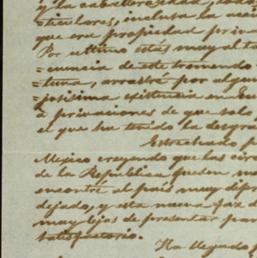 y la caballerosidad, todo
ticulares, incluso la
que era propiedad priva
Por ultimo estas muy al ta
=cuencia de este tremendo
=tuna, arrastré por algun
=josisima existencia en
a privaciones de que solo
el que ha tenido la desgra
Estrechado p
Mexico creyendo que las cir
de la Republica fueron m
encontré el país muy difer
dejado, y esta nueva faz d
muy lejos de presentar para
satisfactorio.
Ha llegado p